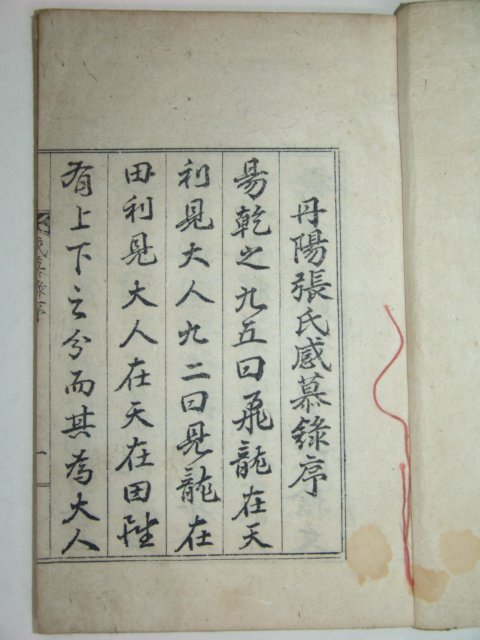 丹陽張氏感慕錄序
易乾之九五曰飛龍在天
利見大人九二曰見龍在
田利見大人在天在田雖
有上下之分而其為大人
感慕錄序
一